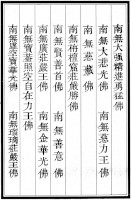 南無大強精進勇猛佛
南無大悲光佛 南無慈力王佛
南無慈藏佛
南無栴檀窟莊嚴勝佛
南無賢善首佛 南無善意佛
南無廣莊嚴王佛 南無金華光佛
南無寶蓋照空自在力王佛
南無虛空寶華光佛 南無琉璃莊嚴王佛